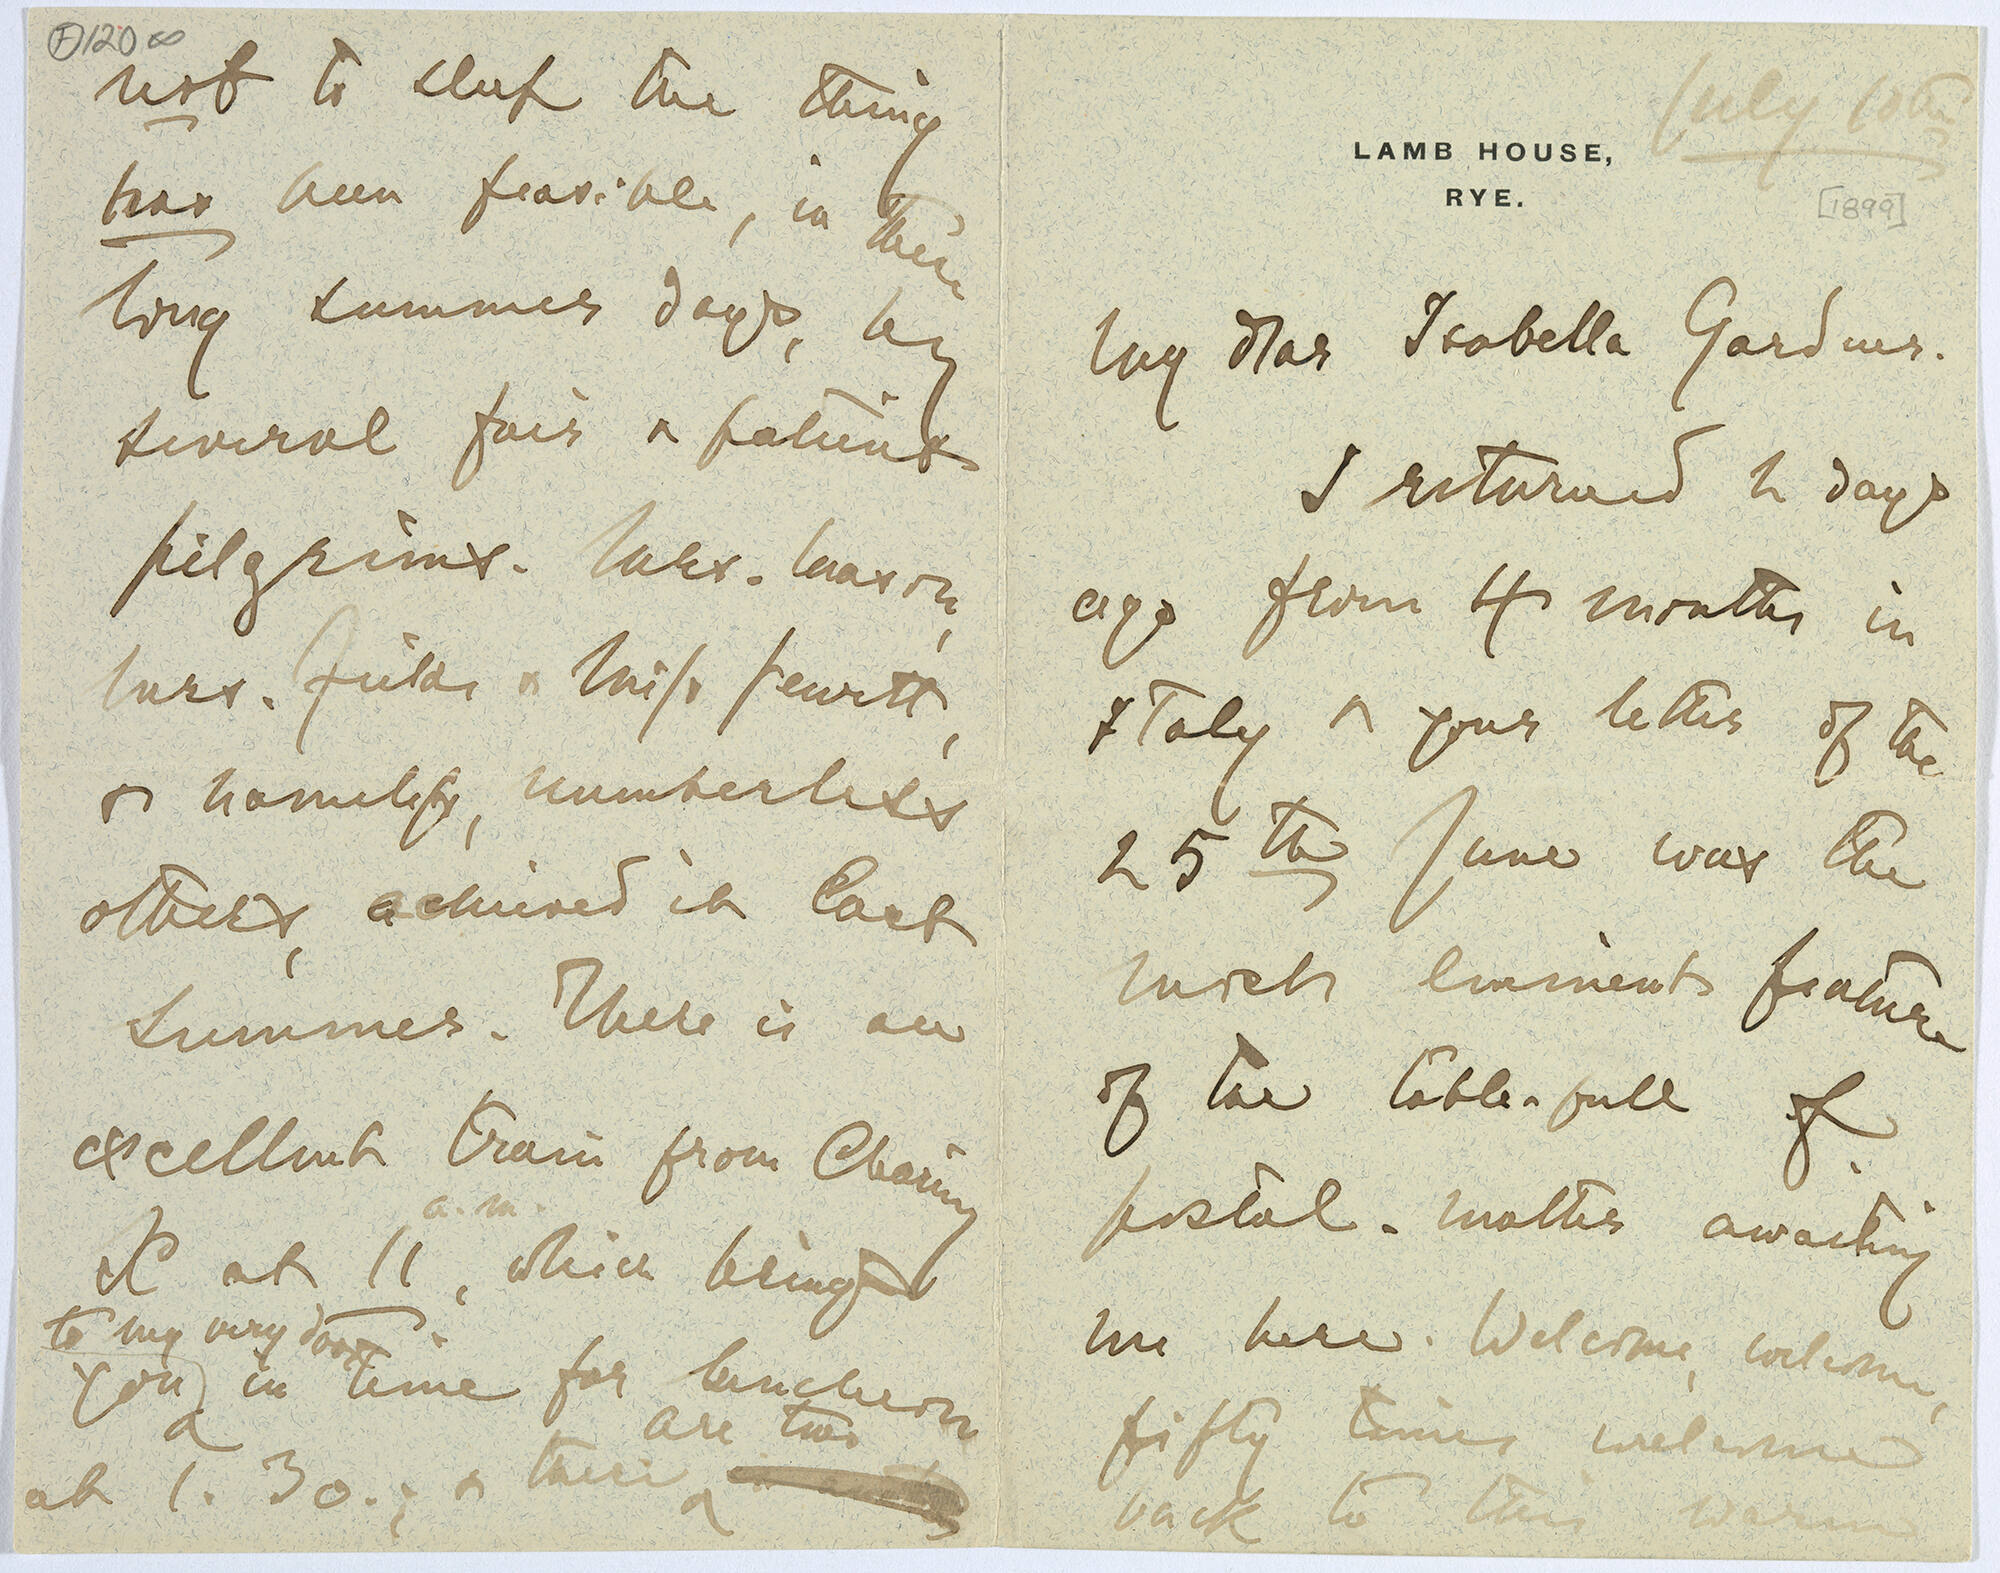 July 10th
LAMB HOUSE,
RYE.
[1899]
My dear Isabella Gardner.
I returned 2 days
ago from 4 months in
Italy & your letter of the
25th June was the
most eminent feature
of the table-full of
postal-matter awaiting
me here. Welcome, welcome,
fifty times welcome
back to this warm
F 120∞
not to sleep the thing
has been feasible, in these
long summer days, by
several fair & patient
pilgrims. Mrs. Mason,
Mrs. Fields & Miss Jewett,
& numberless
others, achieved it last
summer. There is an
excellent train from Charing
X at 11 a.m., which brings
you to my very door in time for luncheon
at 1.30.; & there are two